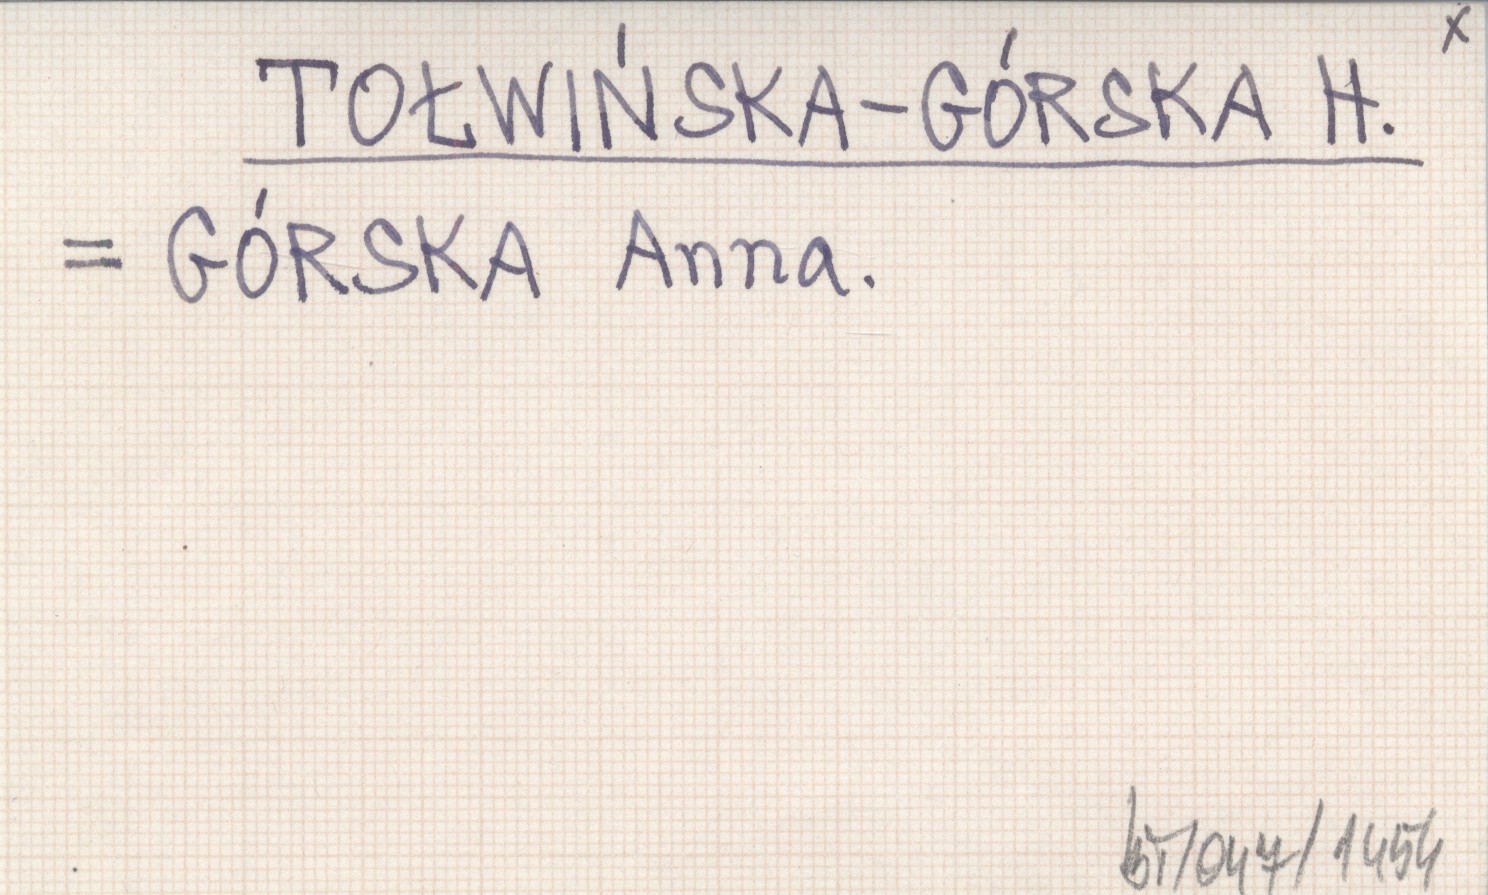 x
TOŁWIŃSKA-GÓRSKA H.
= GÓRSKA Anna.
bī/047/1454